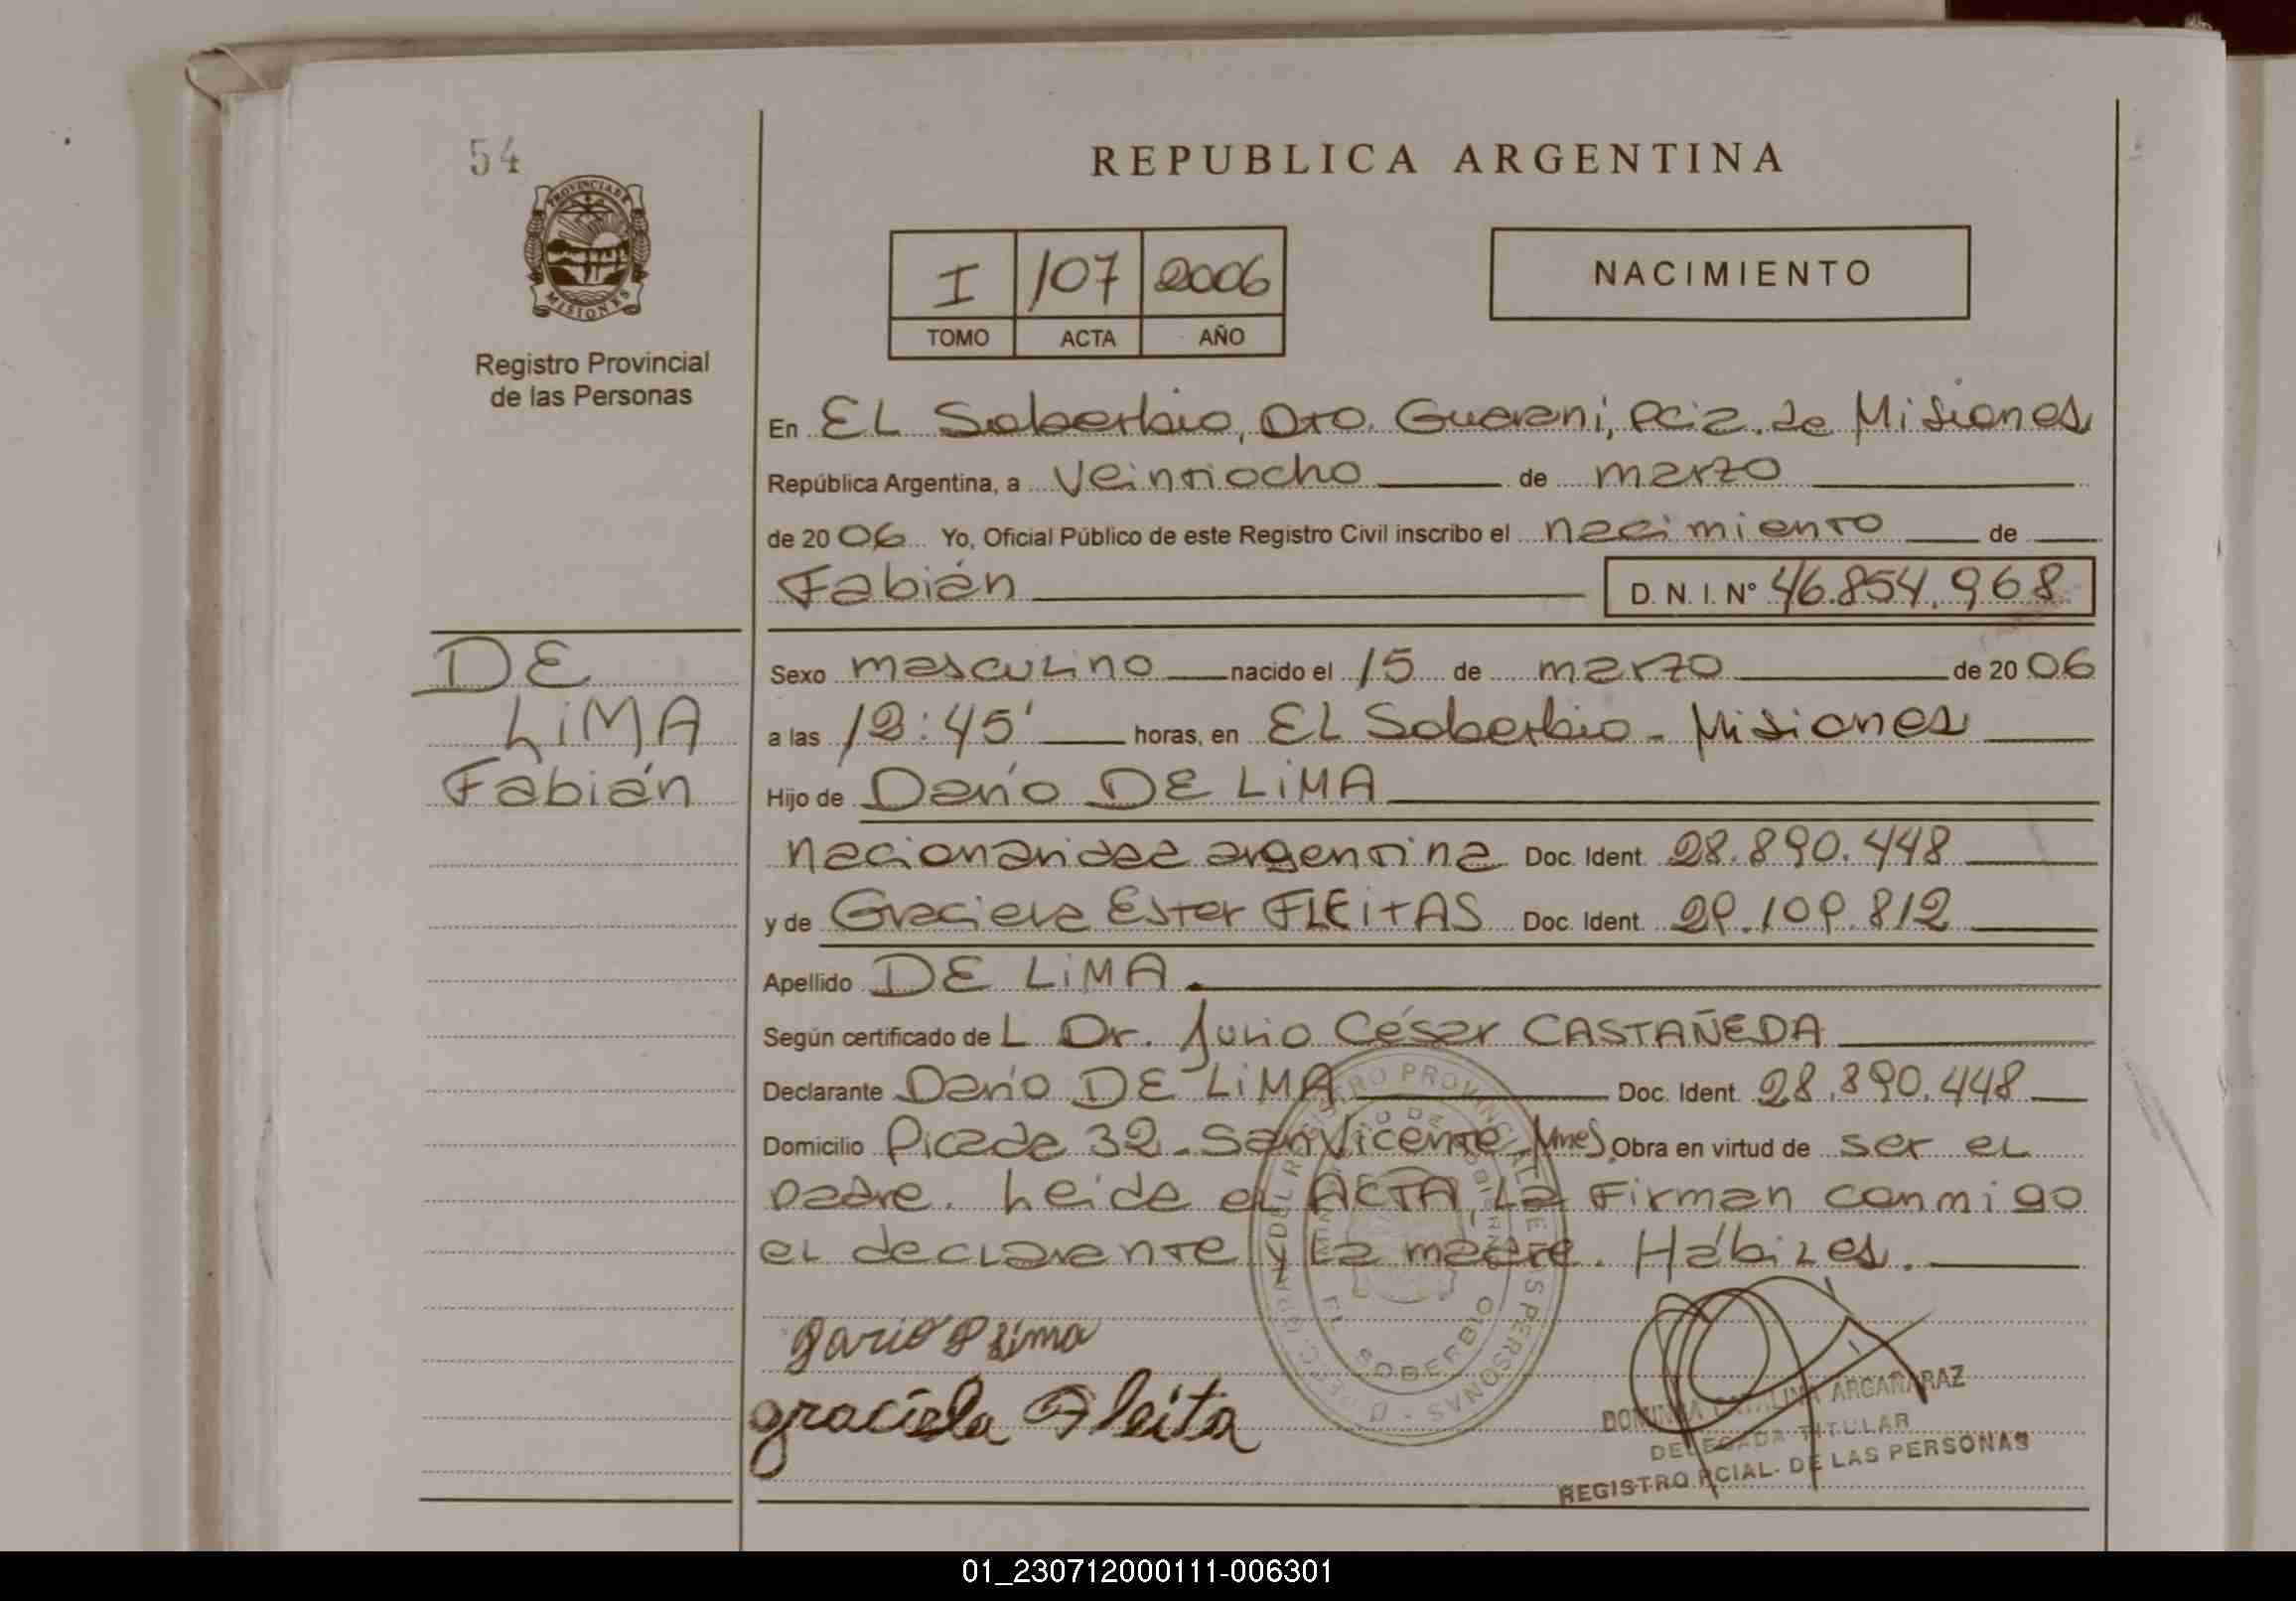 54
PROVINCIA DE
MISIONES
Registro Provincial
de las Personas
REPUBLICA ARGENTINA
I 107 2006
TOMO ACTA AÑO
NACIMIENTO
En EL Soberbio, Dto. Guaraní, Pcia. de Misiones
República Argentina, a Veintiocho de marzo
de 2006 Yo, Oficial Público de este Registro Civil inscribo el nacimiento de
Fabián D. N. I. Nº 46.854.968
DE
LiMA
Fabián
Sexo masculino nacido el 15 de marzo de 2006
a las 12:45' horas, en EL Soberbio - Misiones
Hijo de Darío DE LiMA
nacionalidad argentina Doc. Ident. 28.890.448
y de Graciela Ester FLEitAS Doc. Ident. 29.109.812
Apellido DE LiMA.
Según certificado de L Dr. Julio César CASTAÑEDA
Declarante Darío DE LiMA Doc. Ident. 28.890.448
Domicilio Picada 32 - San Vicente, Mnes. Obra en virtud de ser el
padre. Leida el ACTA, la Firman conmigo
el declarante y la madre. Hábiles.
Dario D Lima
graciela Fleita
EL SOBERBIO
DOMINGA CATALINA ARGAÑARAZ
DELEGADA TITULAR
REGISTRO PCIAL. DE LAS PERSONAS
01_230712000111-006301